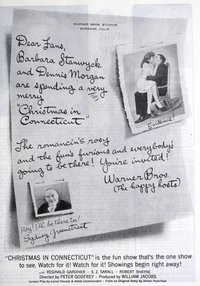 WARNER BROS STUDIOS
BURBANK, CALIF.
Dear Fans,
Barbara Stanwyck
and Dennis Morgan
are spending a very
merry
"Christmas in
Connecticut"
Evidence!
The romancin's rosy
and the fun's furious and everybody's
going to be there! You're invited!
Warner Bros.
(The happy hosts)
Hey! I'll be there too!
Sydney Greenstreet
"CHRISTMAS IN CONNECTICUT" is the fun show that's the one show
to see. Watch for it! Watch for it! Showings begin right away!
with REGINALD GARDINER · S. Z. SAKALL · ROBERT SHAYNE
Directed by PETER GODFREY · Produced by WILLIAM JACOBS
Screen Play by Lionel Houser & Adele Comandini · From an Original Story by Aileen Hamilton